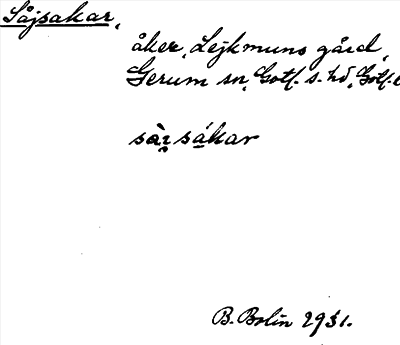 Såjsakar,
åker, Lejkmuns gård,
Gerum sn, Gotl. s. hd, Gotl.
sàɪ sákar
B. Bolin 1931.